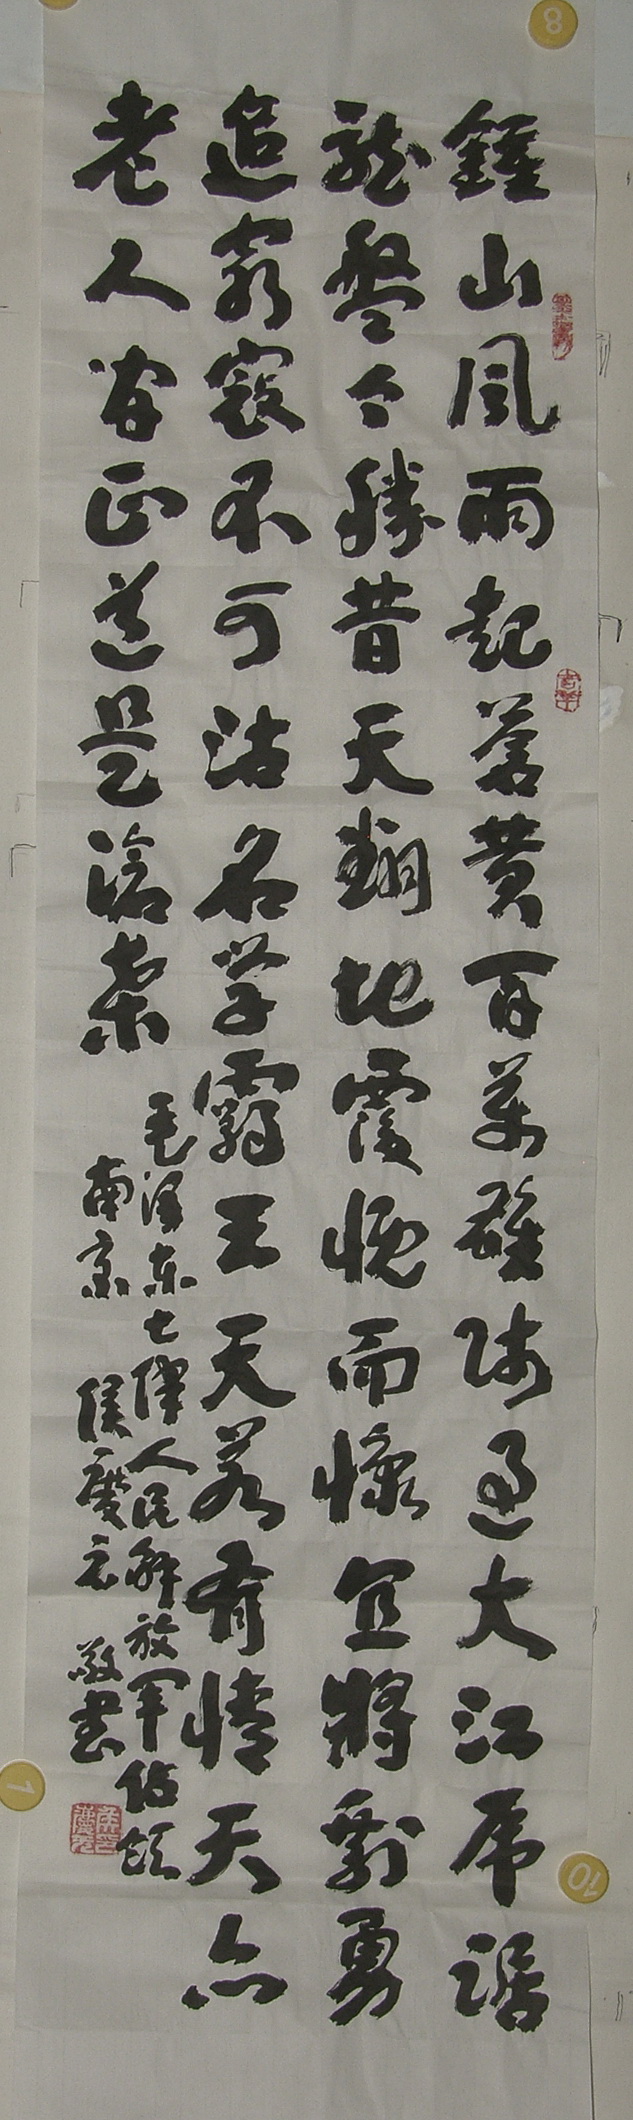 鍾山風雨起蒼黄百萬雄师過大江虎踞
龙盤今勝昔天翻地覆慨而慷宜將剩勇
追窮寇不可沽名学霸王天若有情天亦
老人间正道是滄桑
毛泽东七律人民解放军佔领
南京 侯慶 敬书